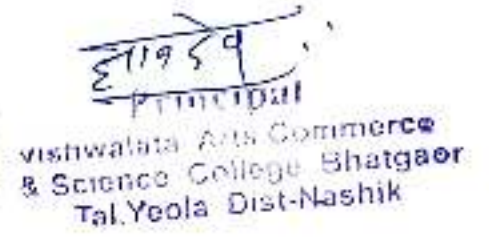 Principal
Vishwalata Arts Commerce
& Science College Bhatgaor
Tal.Yeola Dist-Nashik